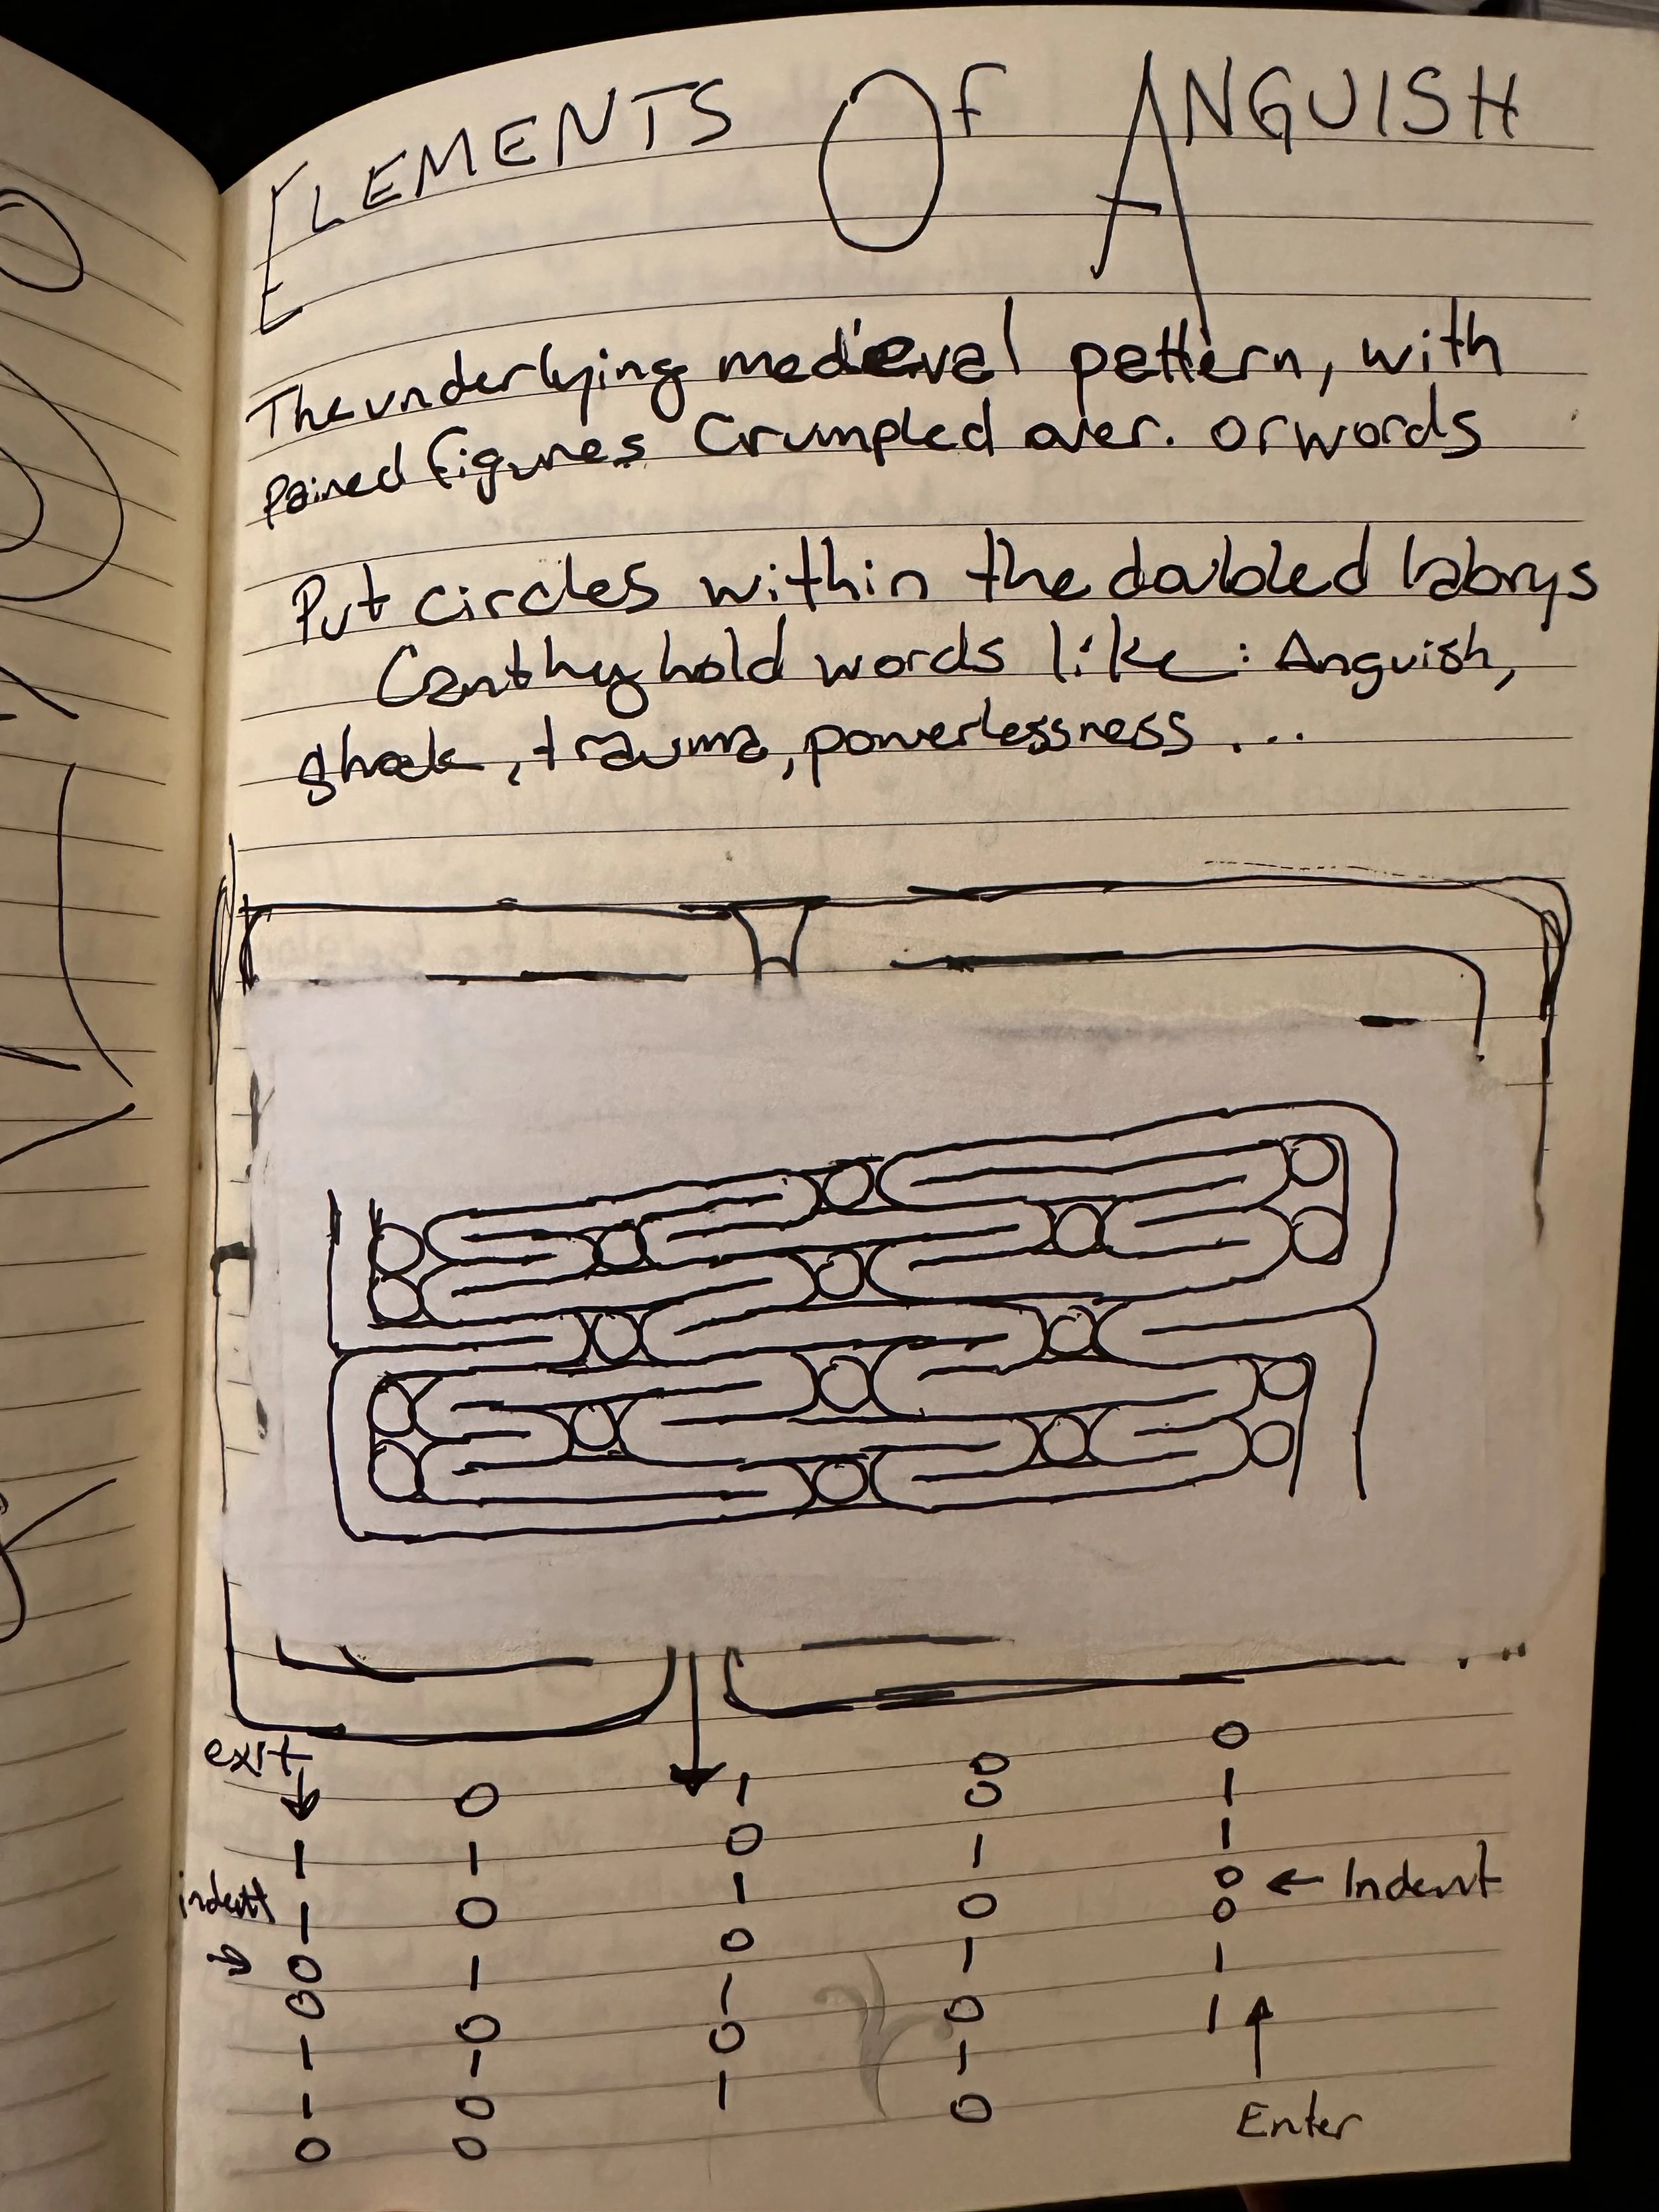 ELEMENTS OF ANGUISH
The underlying medieval pattern, with
pained figures crumpled over. or words
Put circles within the doubled labrys
Can they hold words like: Anguish,
shock, trauma, powerlessness...
exit
0
0 0 1 0 1
1 1 0 1 1
indent 1 0 1 0 0 ← Indent
→ 0 1 0 1 0
0 0 1 0 1
1 1 0 1 1
1 0 1 0
0 0
Enter